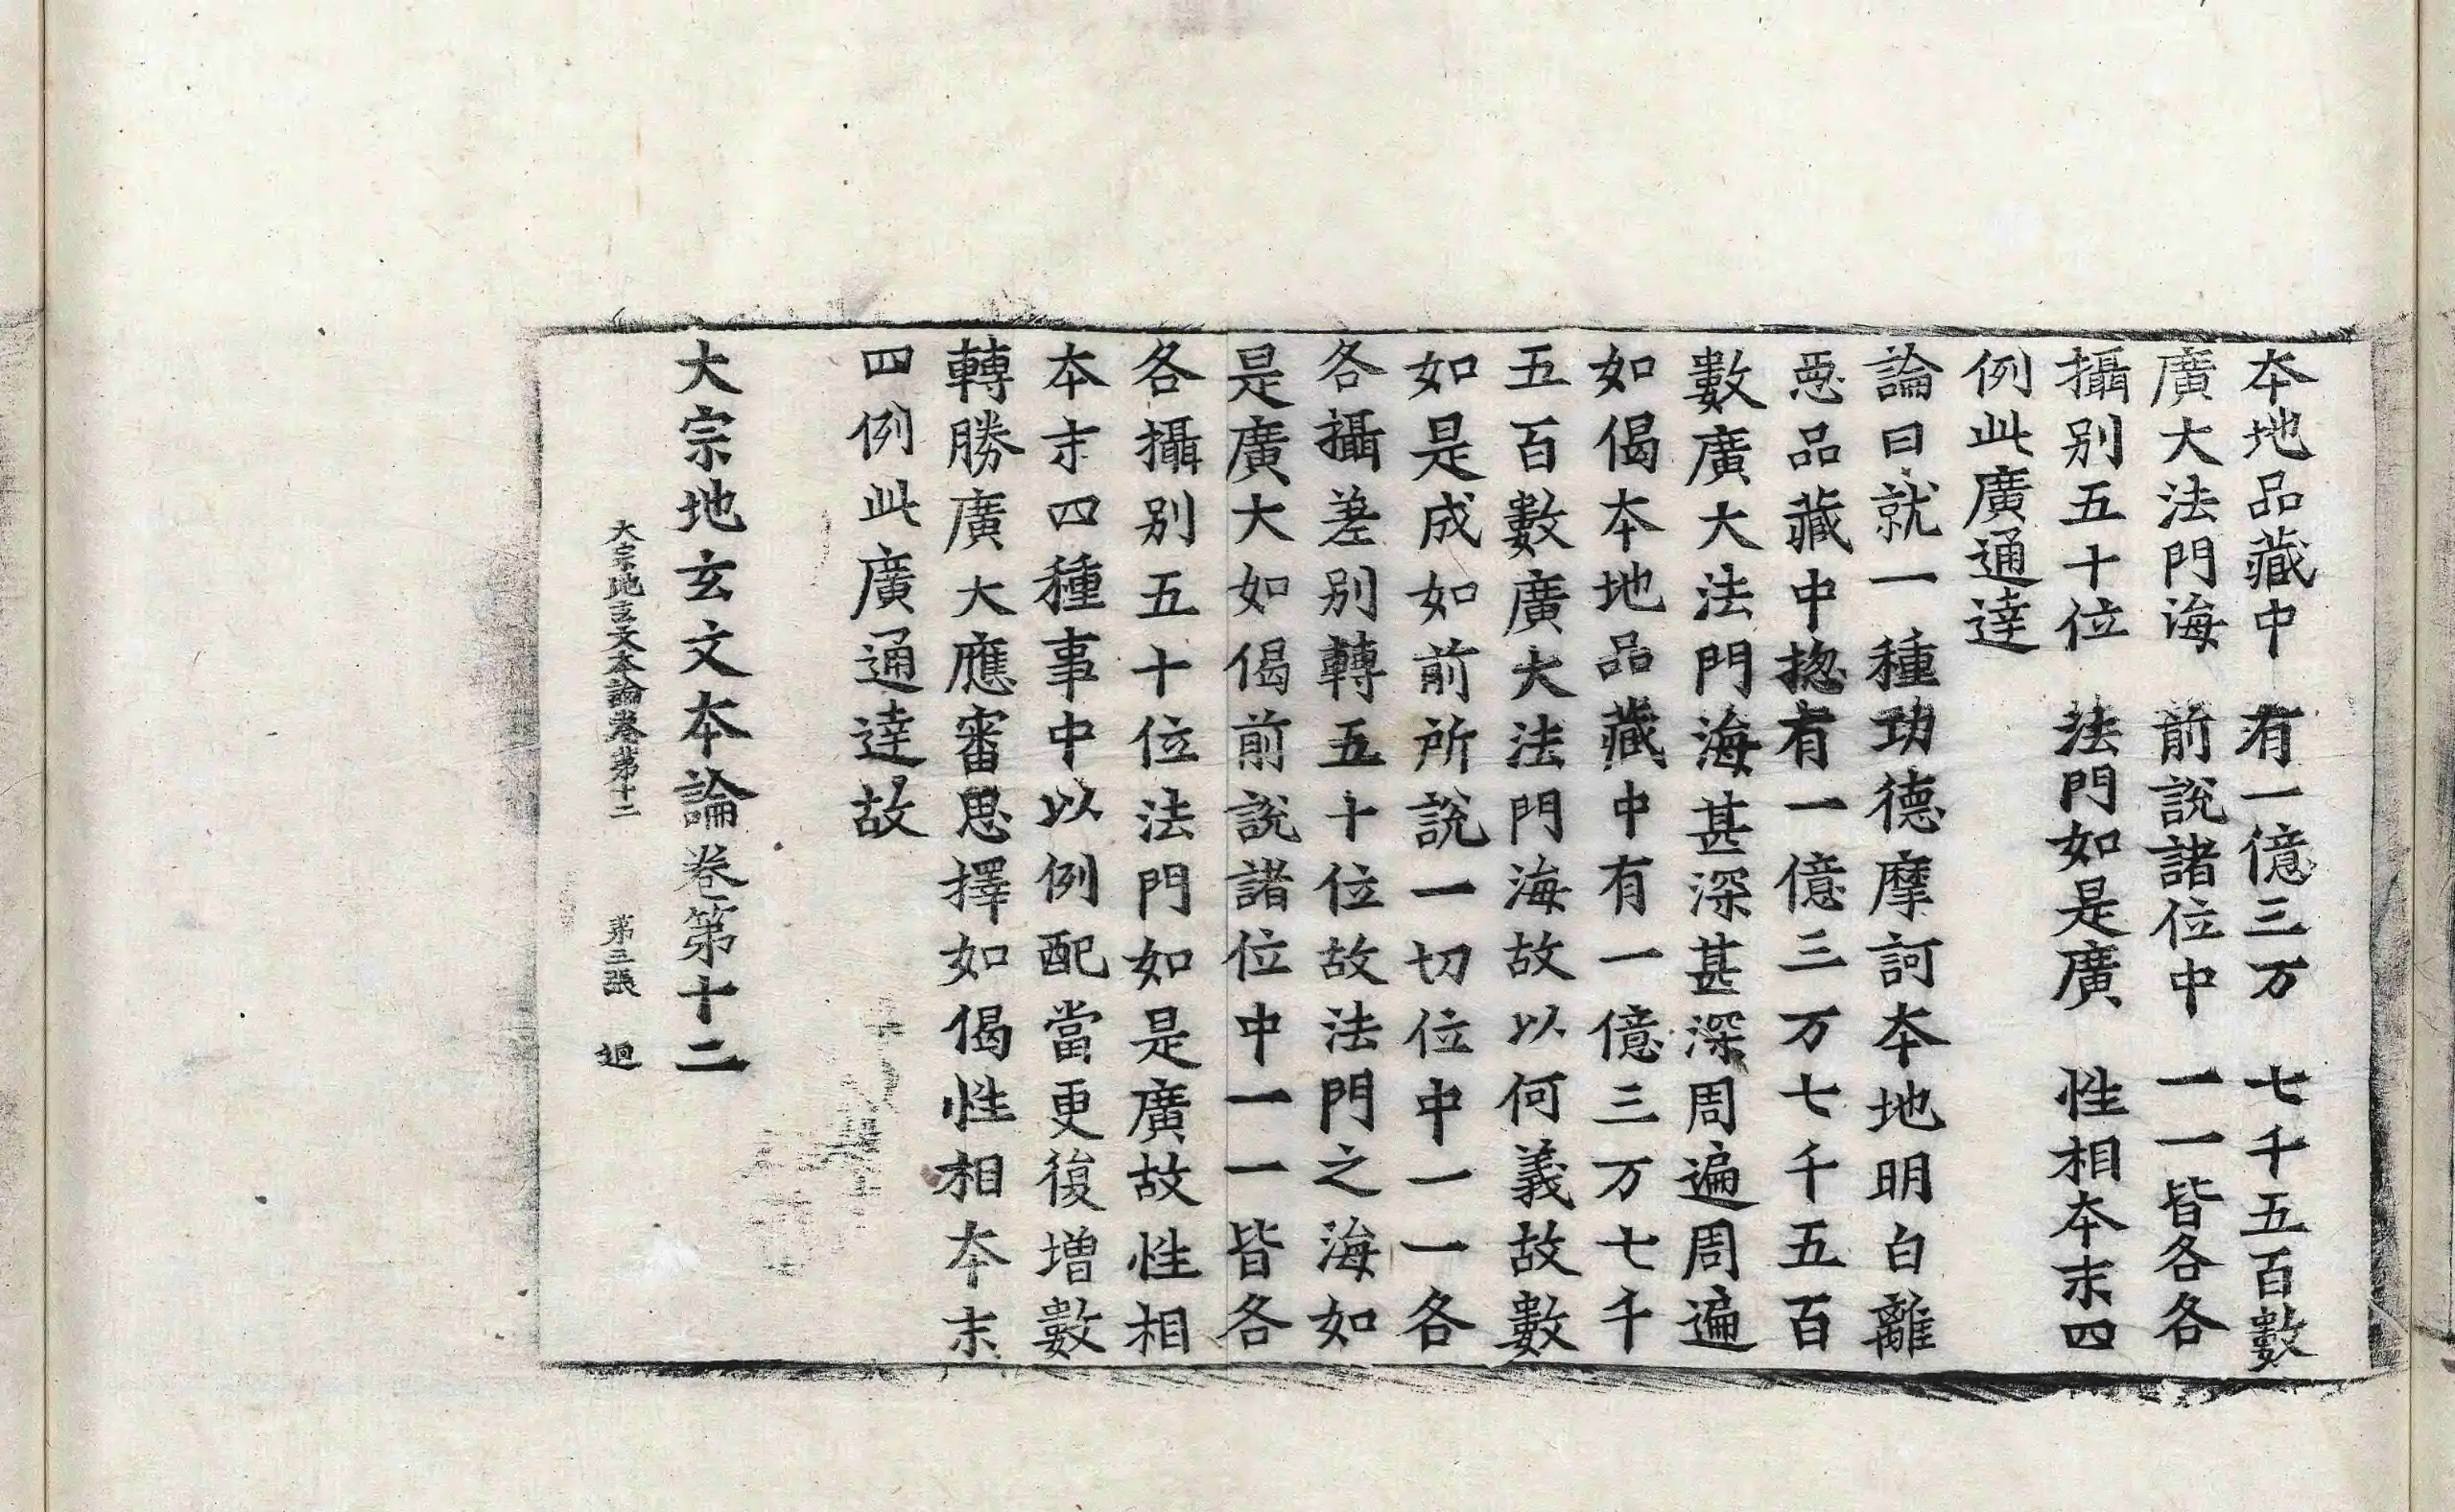 本地品藏中　有一億三万　七千五百數
廣大法門海　前說諸位中　一一皆各各
攝别五十位　法門如是廣　性相本末四
例此廣通達
論曰就一種功德摩訶本地明白離
惡品藏中揔有一億三万七千五百
數廣大法門海甚深甚深周遍周遍
如偈本地品藏中有一億三万七千
五百數廣大法門海故以何義故數
如是成如前所說一切位中一一各
各攝差別轉五十位故法門之海如
是廣大如偈前說諸位中一一皆各
各攝別五十位法門如是廣故性相
本末四種事中以例配當更復增數
轉勝廣大應審思擇如偈性相本末
四例此廣通達故
大宗地玄文本論卷第十二
大宗地玄文本論卷第十二　第三張　迴